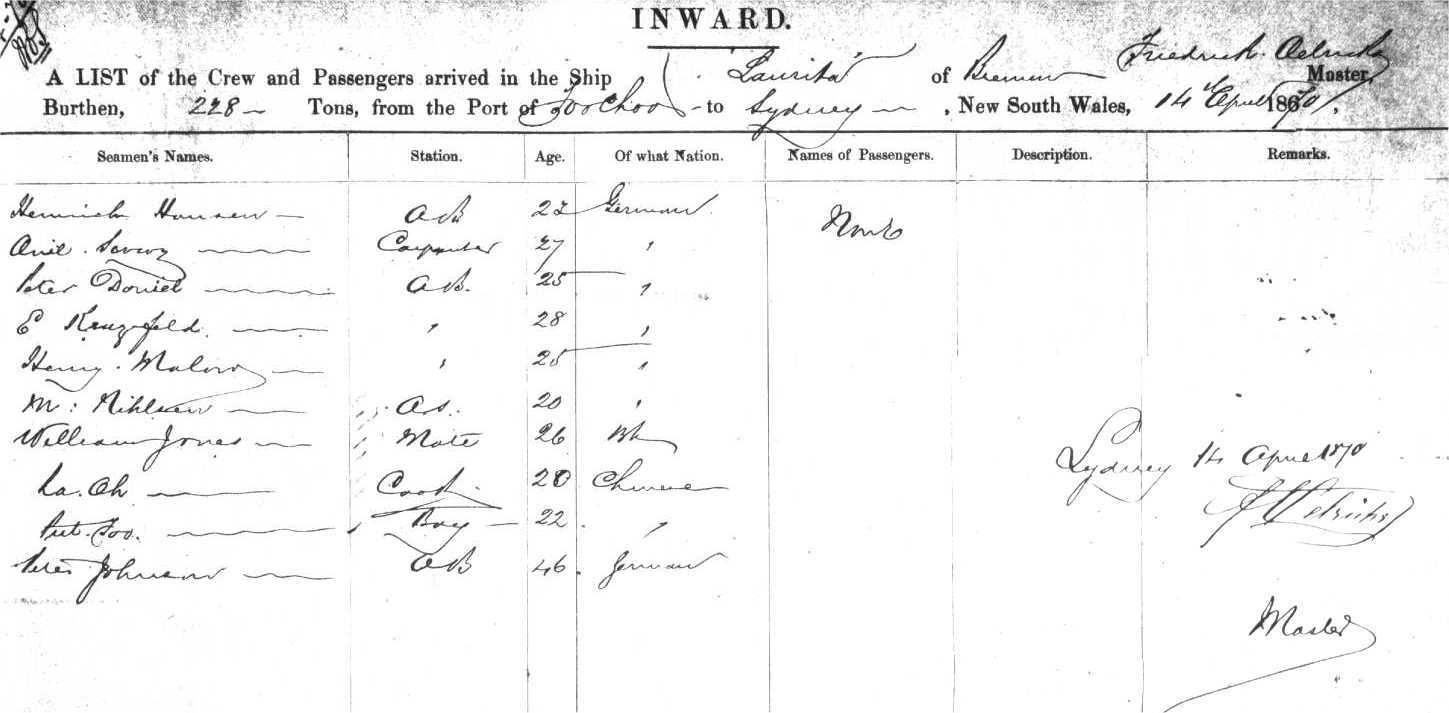 INWARD.
A LIST of the Crew and Passengers arrived in the Ship Laurita of Bremen Friedrick Master,
Burthen, 228 Tons, from the Port of Foo Choo to Sydney, New South Wales, 14 April 1870,
Seamen's Names. Station. Age. Of what Nation. Names of Passengers. Description. Remarks.
Heinrich Hansen AB German None
Carpenter 27 "
Peter Daniel AB. 25 "
E " 28 "
Henry " 25 "
M: 20 "
William Jones Mate 26
La. Ah Cook 20 Chinese
Foo. Boy 22 "
Peter Johnson AB 46 German
Sydney 14 April 1870
Master